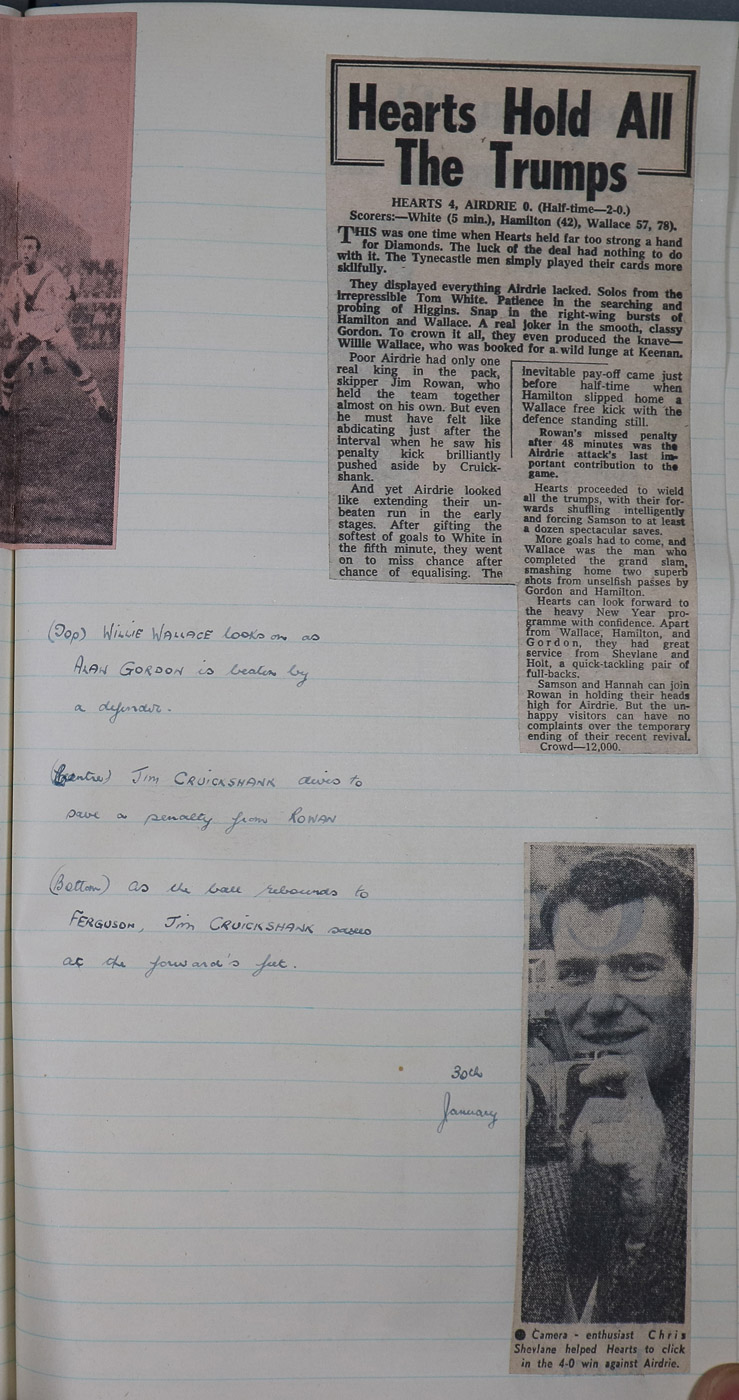 Hearts Hold All
The Trumps
HEARTS 4, AIRDRIE 0. (Half-time—2-0.)
Scorers:—White (5 min.), Hamilton (42), Wallace 57, 78).
THIS was one time when Hearts held far too strong a hand
for Diamonds. The luck of the deal had nothing to do
with it. The Tynecastle men simply played their cards more
skilfully.
They displayed everything Airdrie lacked. Solos from the
irrepressible Tom White. Patience in the searching and
probing of Higgins. Snap in the right-wing bursts of
Hamilton and Wallace. A real joker in the smooth, classy
Gordon. To crown it all, they even produced the knave—
Willie Wallace, who was booked for a wild lunge at Keenan.
Poor Airdrie had only one
real king in the pack,
skipper Jim Rowan, who
held the team together
almost on his own. But even
he must have felt like
abdicating just after the
interval when he saw his
penalty kick brilliantly
pushed aside by Cruick-
shank.
And yet Airdrie looked
like extending their un-
beaten run in the early
stages. After gifting the
softest of goals to White in
the fifth minute, they went
on to miss chance after
chance of equalising. The
inevitable pay-off came just
before half-time when
Hamilton slipped home a
Wallace free kick with the
defence standing still.
Rowan's missed penalty
after 48 minutes was the
Airdrie attack's last im-
portant contribution to the
game.
Hearts proceeded to wield
all the trumps, with their for-
wards shuffling intelligently
and forcing Samson to at least
a dozen spectacular saves.
More goals had to come, and
Wallace was the man who
completed the grand slam,
smashing home two superb
shots from unselfish passes by
Gordon and Hamilton.
Hearts can look forward to
the heavy New Year pro-
gramme with confidence. Apart
from Wallace, Hamilton, and
Gordon, they had great
service from Shevlane and
Holt, a quick-tackling pair of
full-backs.
Samson and Hannah can join
Rowan in holding their heads
high for Airdrie. But the un-
happy visitors can have no
complaints over the temporary
ending of their recent revival.
Crowd—12,000.
(Top) WILLIE WALLACE looks on as
ALAN GORDON is beaten by
a defender.
(Centre) JIM CRUICKSHANK dives to
save a penalty from ROWAN
(Bottom) as the ball rebounds to
FERGUSON, JIM CRUICKSHANK saves
at the forward's feet.
30th
January
Camera - enthusiast Chris
Shevlane helped Hearts to click
in the 4-0 win against Airdrie.